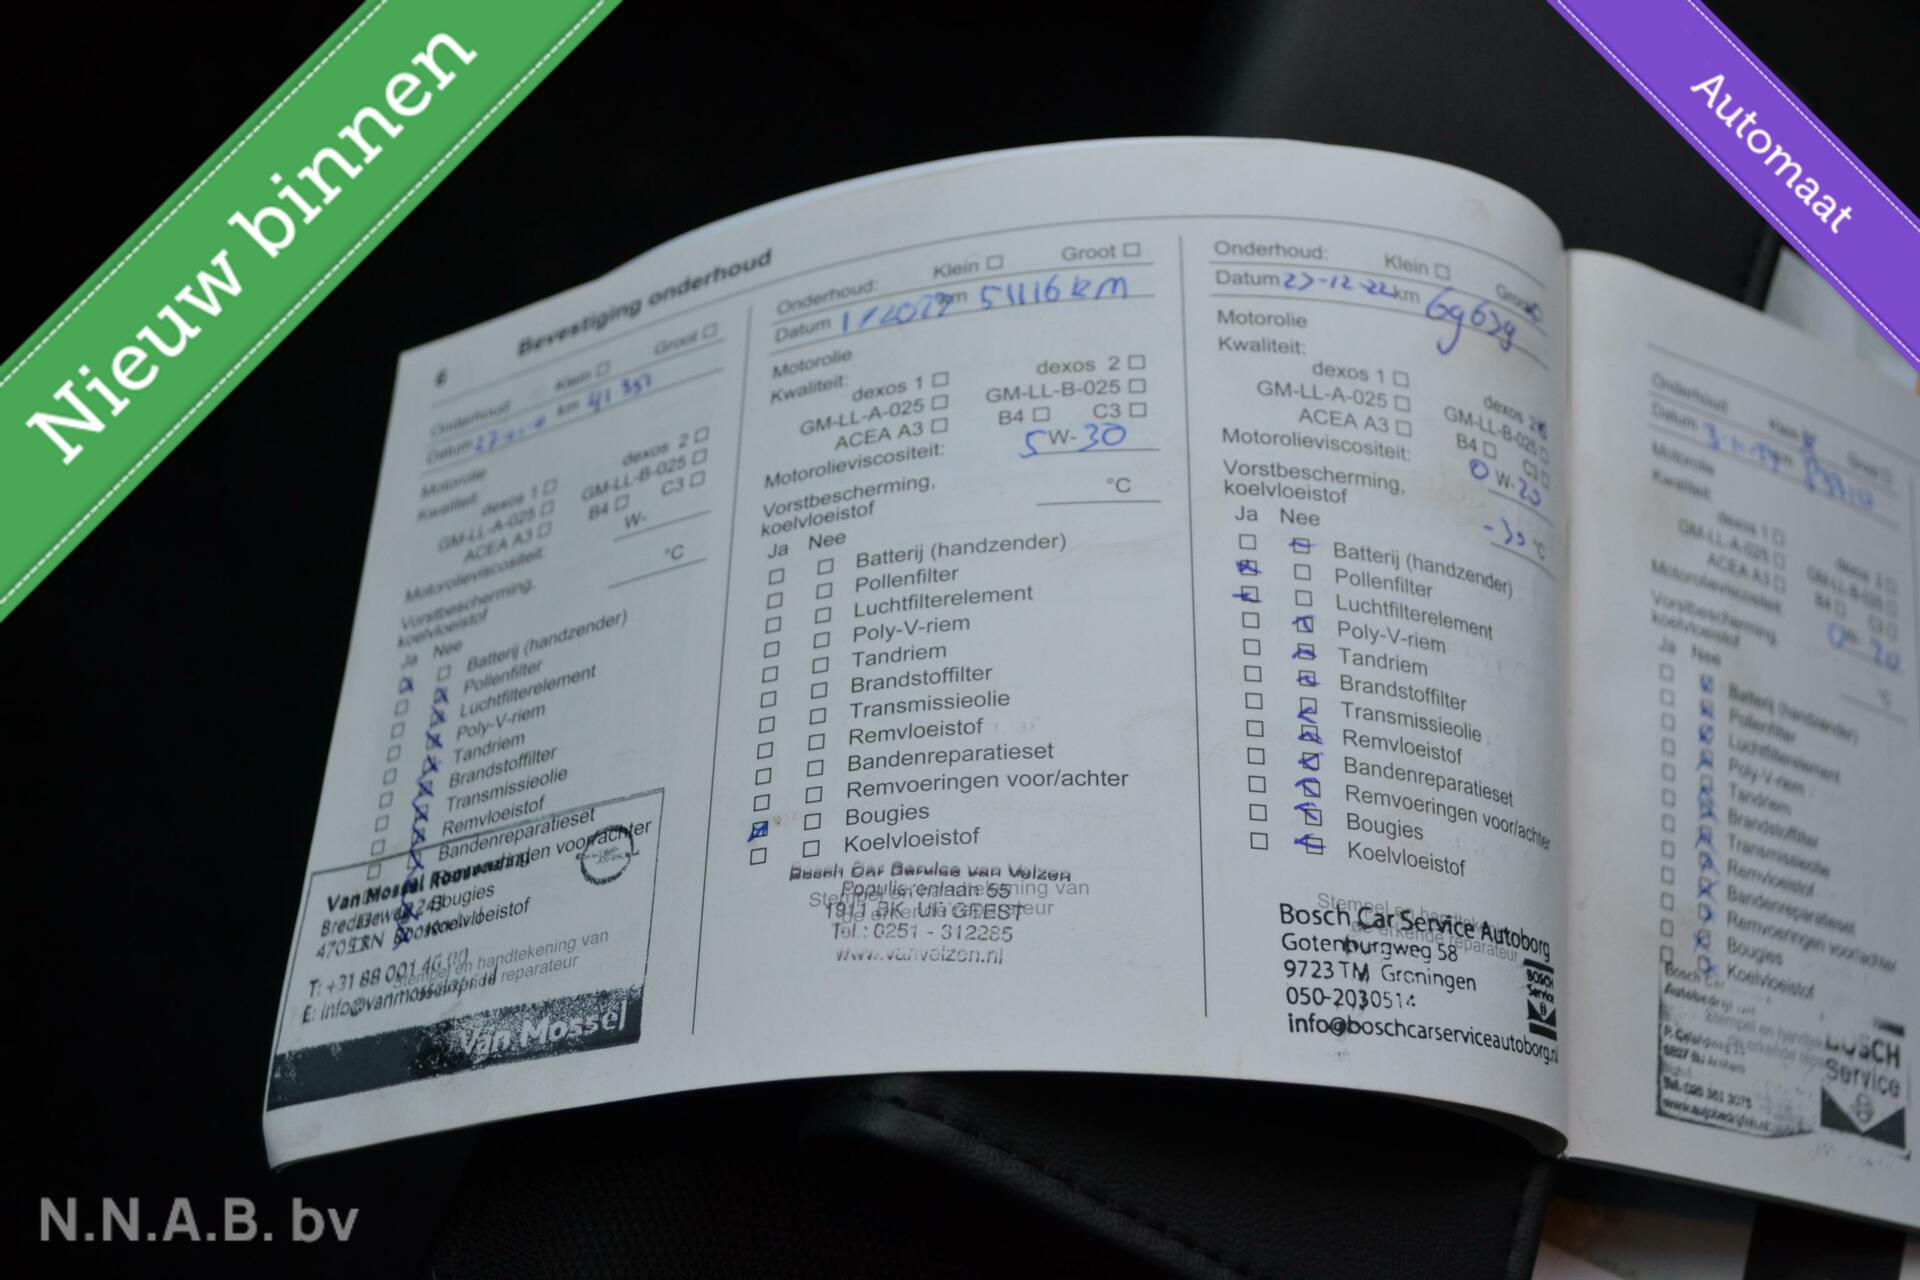 Nieuw binnen
Automaat
6
Bevestiging onderhoud
Onderhoud: Klein Groot
Datum km 41 357
Motorolie
Kwaliteit:
dexos 1 dexos 2
GM-LL-A-025 GM-LL-B-025
ACEA A3 B4 C3
Motorolieviscositeit: W-
Vorstbescherming,
koelvloeistof °C
Ja Nee
Batterij (handzender)
Pollenfilter
Luchtfilterelement
Poly-V-riem
Tandriem
Brandstoffilter
Transmissieolie
Remvloeistof
Bandenreparatieset
Remvoeringen voor/achter
Bougies
Koelvloeistof
Stempel en handtekening van
reparateur
Van Mossel
Van Mossel
Onderhoud: Klein Groot
Datum 1/2022 km 51116 km
Motorolie
Kwaliteit:
dexos 1 dexos 2
GM-LL-A-025 GM-LL-B-025
ACEA A3 B4 C3
Motorolieviscositeit: 5 W- 30
Vorstbescherming,
koelvloeistof °C
Ja Nee
Batterij (handzender)
Pollenfilter
Luchtfilterelement
Poly-V-riem
Tandriem
Brandstoffilter
Transmissieolie
Remvloeistof
Bandenreparatieset
Remvoeringen voor/achter
Bougies
Koelvloeistof
Bosch Car Service van Velzen
Populierenlaan 55
1911 BK UITGEEST
Tel.: 0251 - 312285
www.vanvelzen.nl
Onderhoud: Klein Groot
Datum 27-12-22 km 69639
Motorolie
Kwaliteit:
dexos 1 dexos 2
GM-LL-A-025 GM-LL-B-025
ACEA A3 B4 C3
Motorolieviscositeit: 0 W- 20
Vorstbescherming,
koelvloeistof -30 °C
Ja Nee
Batterij (handzender)
Pollenfilter
Luchtfilterelement
Poly-V-riem
Tandriem
Brandstoffilter
Transmissieolie
Remvloeistof
Bandenreparatieset
Remvoeringen voor/achter
Bougies
Koelvloeistof
Bosch Car Service Autoborg
Gotenburgweg 58
9723 TM Groningen
050-203051
info@boschcarserviceautoborg.nl
BOSCH
Service
Onderhoud: Klein Groot
Datum km
Motorolie
Kwaliteit:
dexos 1 dexos 2
GM-LL-A-025 GM-LL-B-025
ACEA A3 B4 C3
Motorolieviscositeit: 0 W- 20
Vorstbescherming,
koelvloeistof °C
Ja Nee
Batterij (handzender)
Pollenfilter
Luchtfilterelement
Poly-V-riem
Tandriem
Brandstoffilter
Transmissieolie
Remvloeistof
Bandenreparatieset
Remvoeringen voor/achter
Bougies
Koelvloeistof
Bosch Car
BOSCH
Service
N.N.A.B. bv